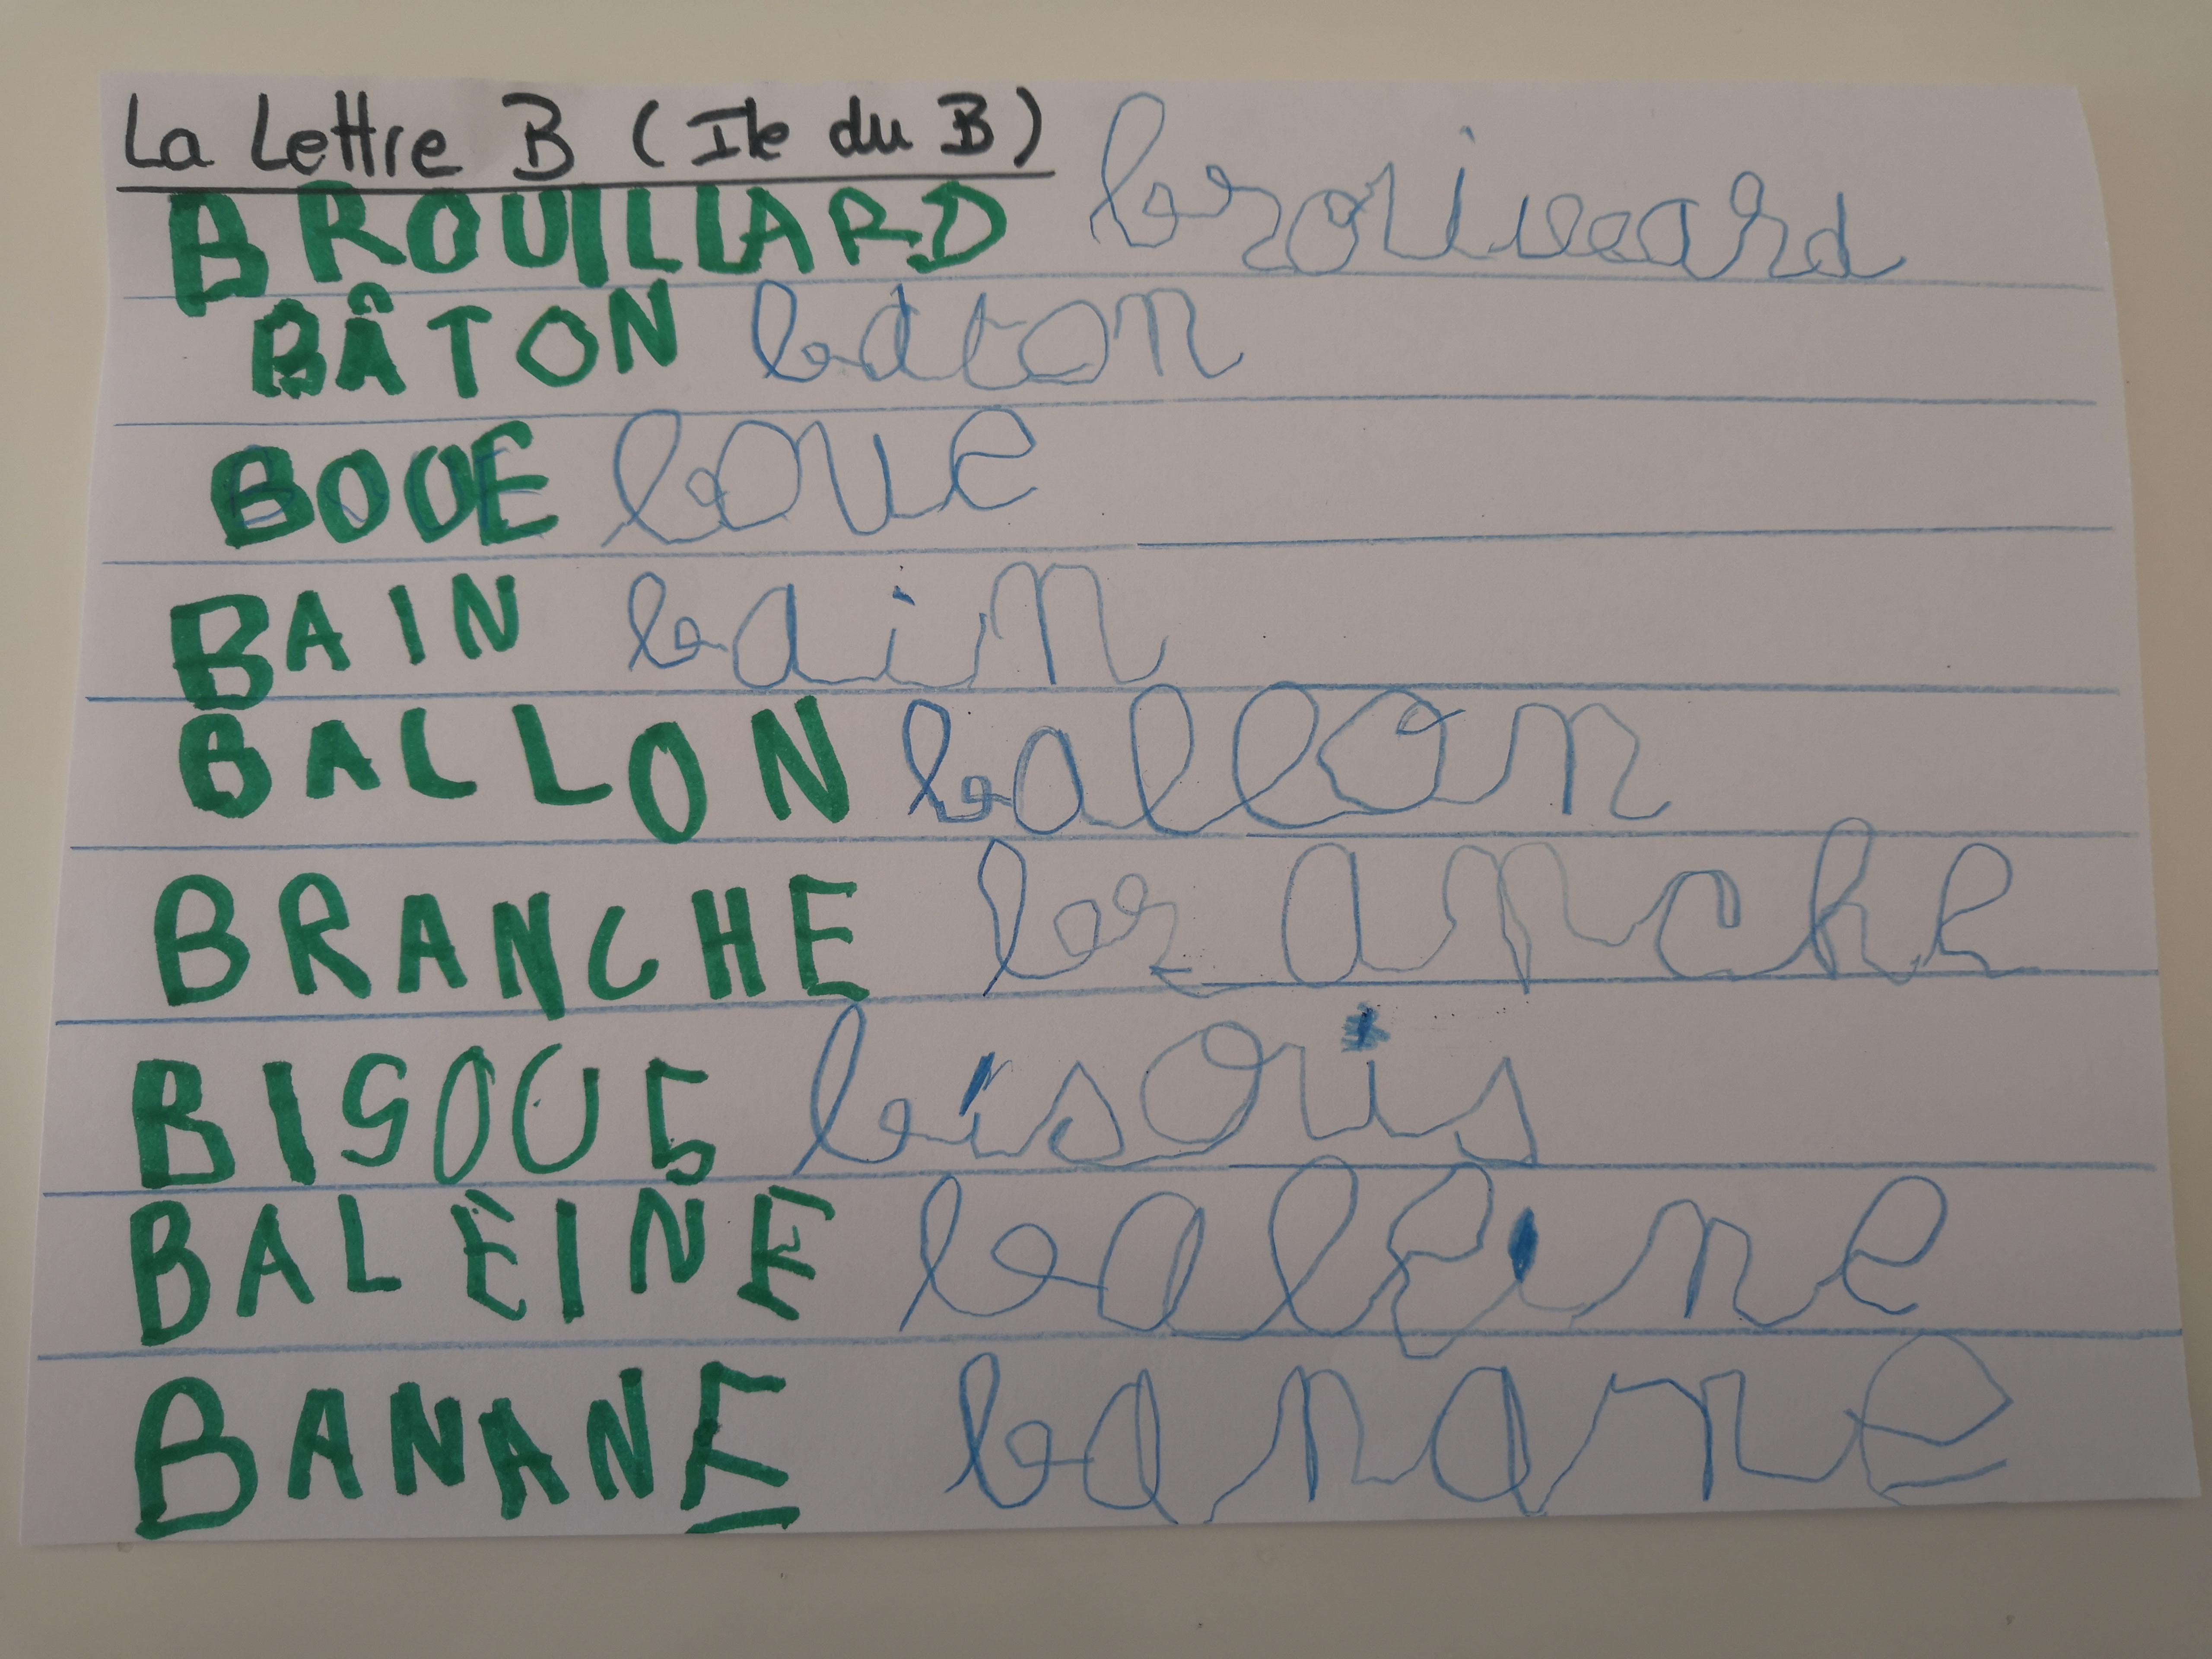 La Lettre B (Ile du B)
BROUILLARD brouillard
BÂTON bâton
BOUE boue
BAIN bain
BALLON ballon
BRANCHE branche
BISOUS bisous
BALEINE baleine
BANANE banane